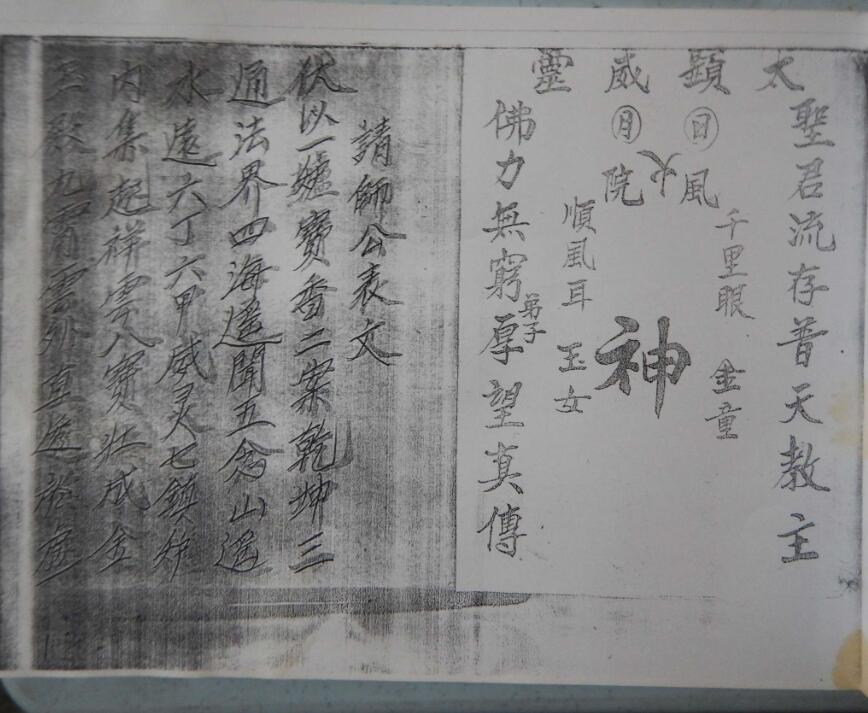 太顯威靈
聖君流存普天教主
千里眼 金童
日風
火
神
月院
順風耳 玉女
弟子
佛力無窮厚望真傳
請師公表文
伏以一爐寶香二案乾坤三
通法界四海遥聞五念山遥
水遠六丁六甲威灵七鎮炉
内集起祥雲八寶壯成金
玉敬九霄雲外直透於庭